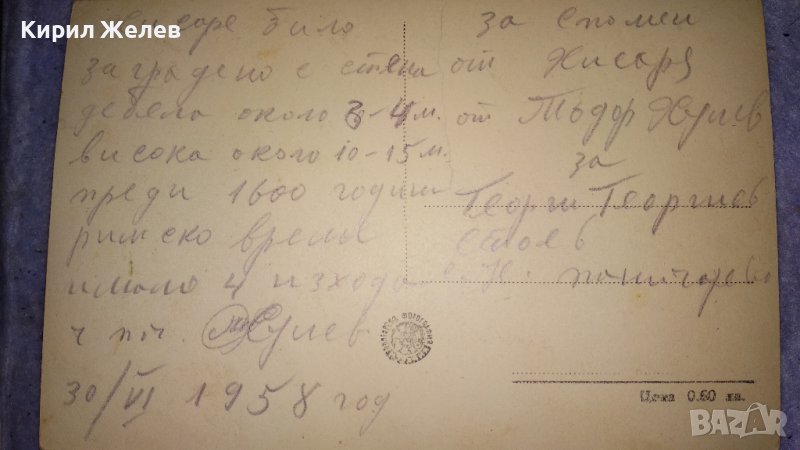 Кирил Желев
било
заградено с стена
дебела около 3-4 м.
висока около 10-15 м.
преди 1600 години
римско време
имало 4 изхода
30/VI 1958 год
за спомен
от Хисаря
от Тъдор
за
Георги Георгиев
Стоев
Цена 0.80 лв.
BAZAR